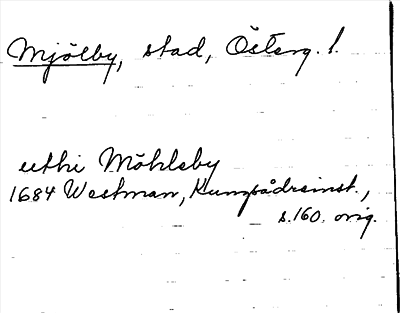 Mjölby, stad, Österg. l.
uthi Möhleby
1684 Westman, Kungsådreinst.,
s. 160. orig.